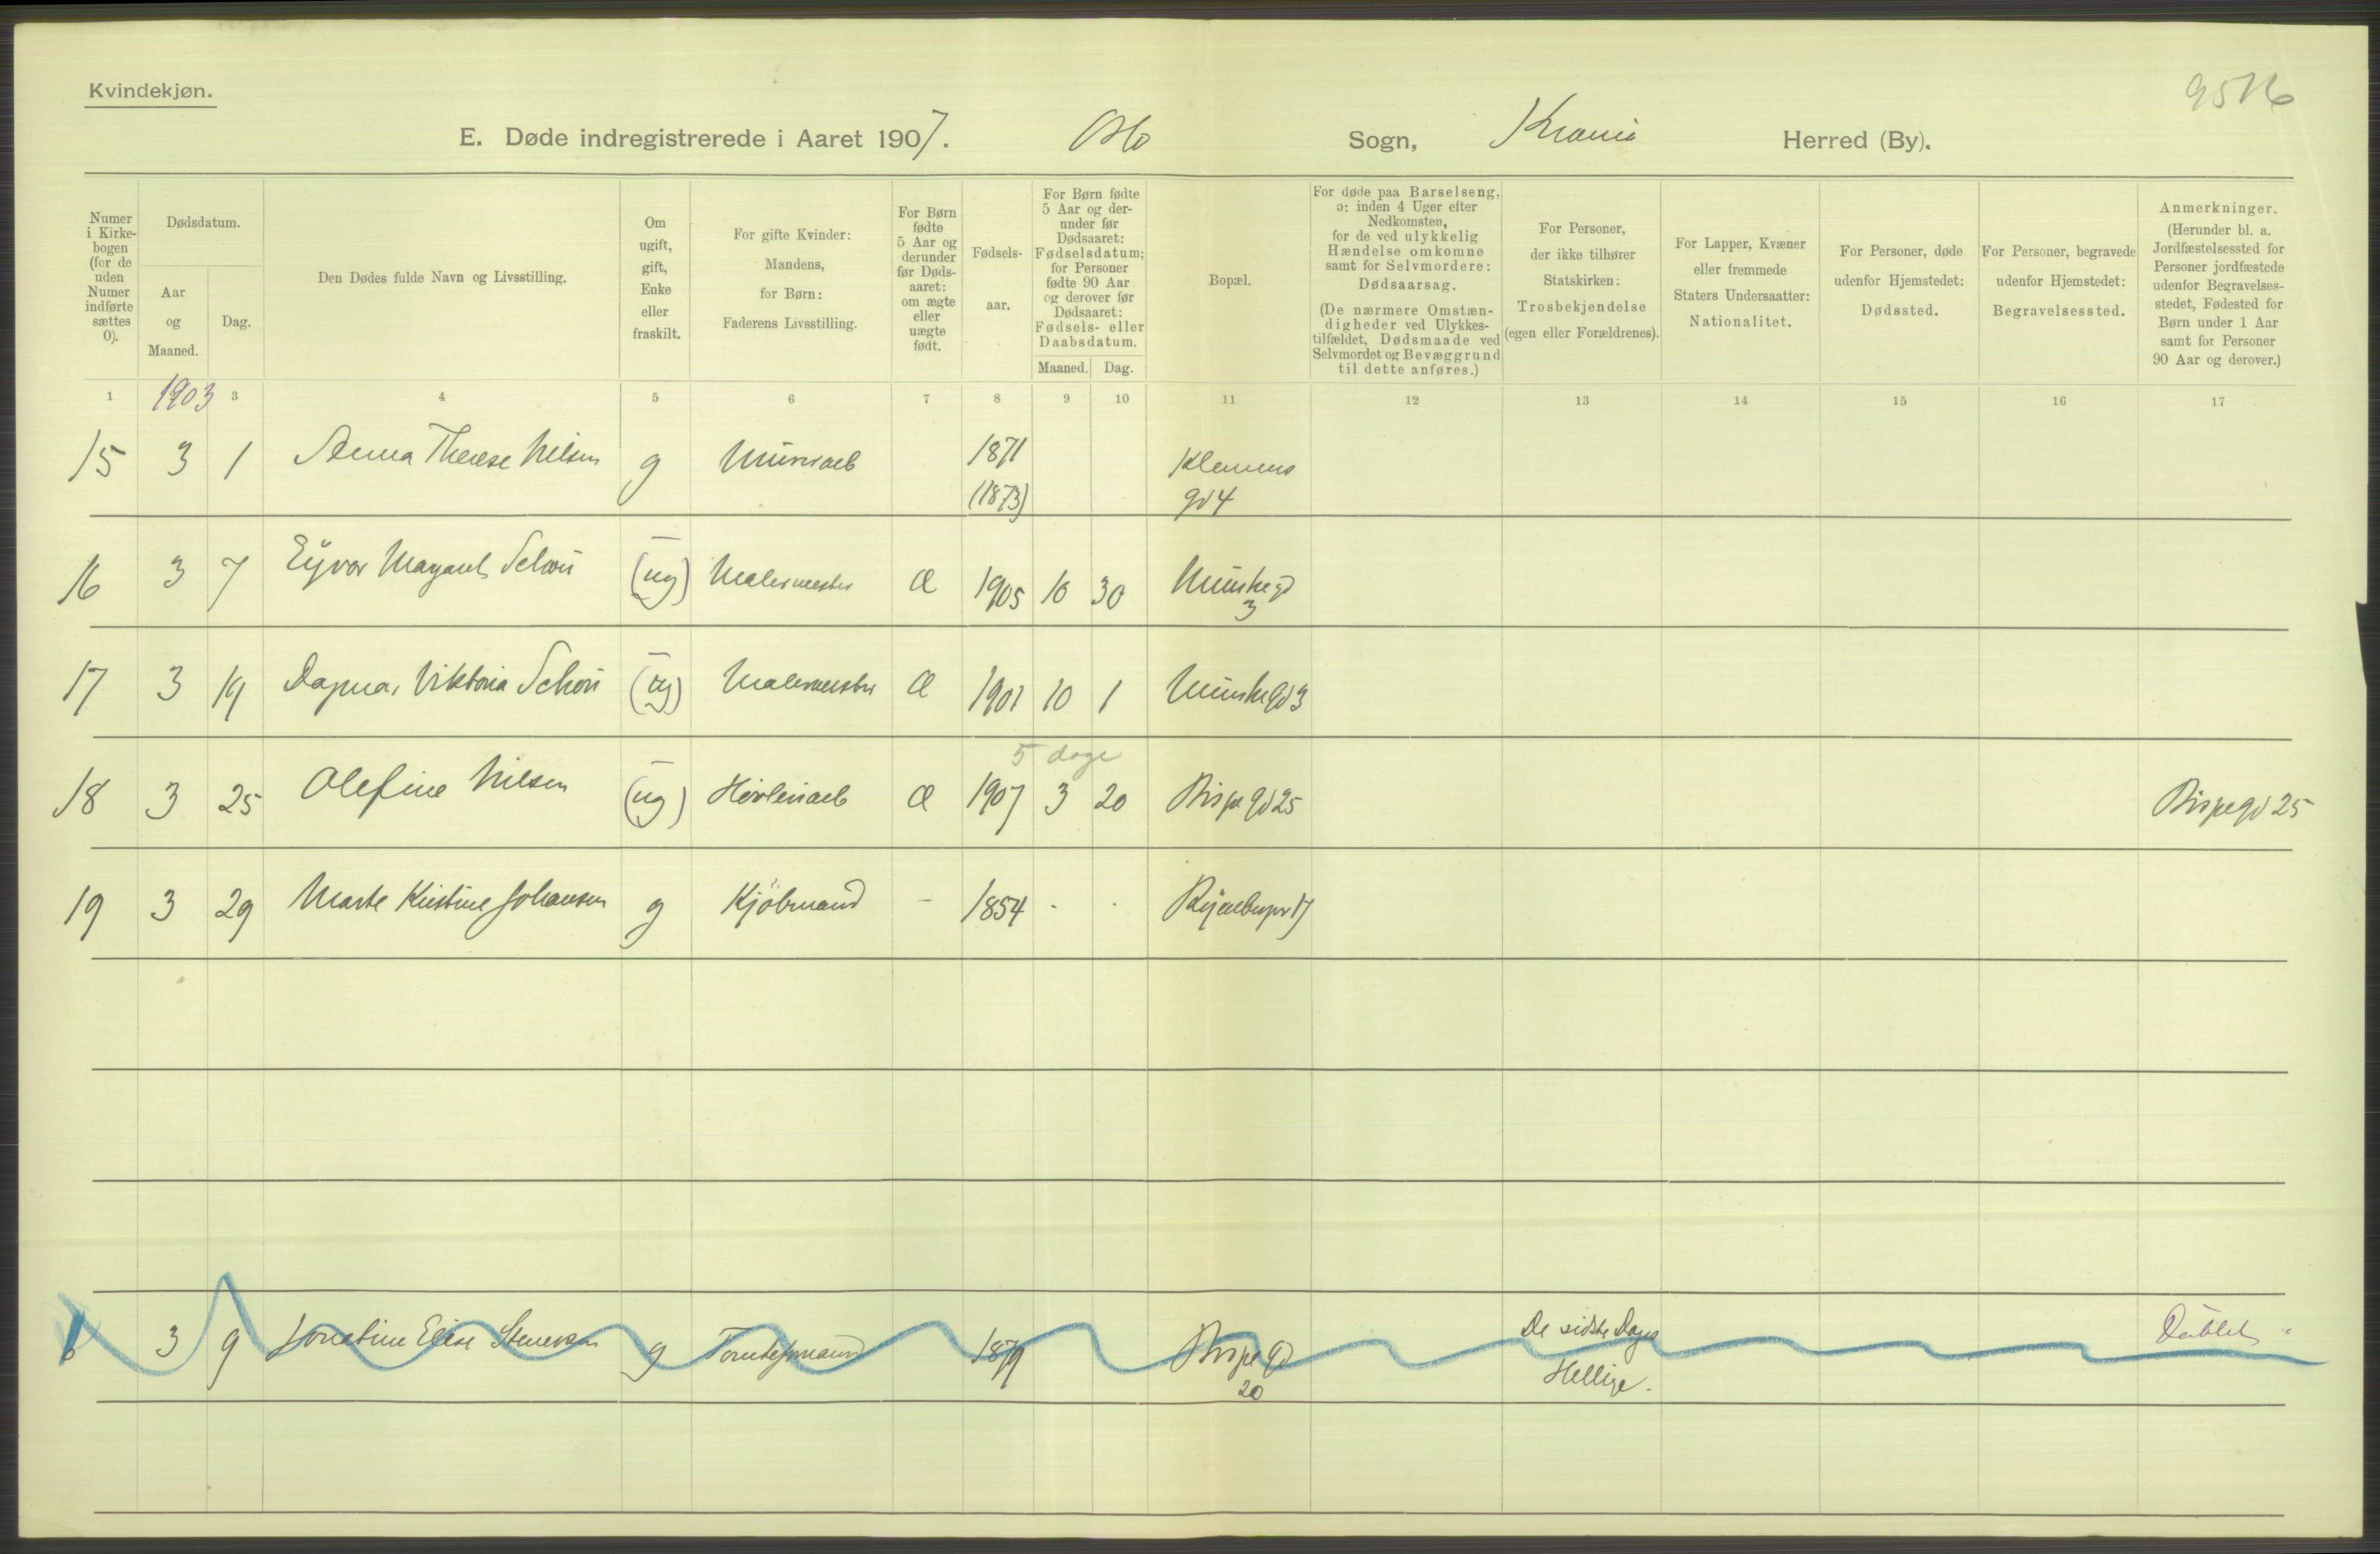 Kvindekjøn.
E. Døde indregistrerede i Aaret 1907. Oslo Sogn, Krania Herred (By).
Numer i Kirkebogen (for de uden Numer indførte sættes 0).
Dødsdatum.
Aar og Maaned.
Dag.
Den Dødes fulde Navn og Livsstilling.
Om ugift, gift, Enke eller fraskilt.
For gifte Kvinder: Mandens, for Børn: Faderens Livsstilling.
For Børn fødte 5 Aar og derunder før Dødsaaret: om ægte eller uægte født.
Fødsels-aar.
For Børn fødte 5 Aar og derunder før Dødsaaret: Fødselsdatum; for Personer fødte 90 Aar og derover før Dødsaaret: Fødsels- eller Daabsdatum.
Maaned. Dag.
Bopæl.
For døde paa Barselseng, ɔ: inden 4 Uger efter Nedkomsten, for de ved ulykkelig Hændelse omkomne samt for Selvmordere: Dødsaarsag.
(De nærmere Omstændigheder ved Ulykkestilfældet, Dødsmaade ved Selvmordet og Bevæggrund til dette anføres.)
For Personer, der ikke tilhører Statskirken: Trosbekjendelse (egen eller Forældrenes).
For Lapper, Kvæner eller fremmede Staters Undersaatter: Nationalitet.
For Personer, døde udenfor Hjemstedet: Dødssted.
For Personer, begravede udenfor Hjemstedet: Begravelsessted.
Anmerkninger. (Herunder bl. a. Jordfæstelsessted for Personer jordfæstede udenfor Begravelsesstedet, Fødested for Børn under 1 Aar samt for Personer 90 Aar og derover.)
1 1903 3 4 5 6 7 8 9 10 11 12 13 14 15 16 17
15 3 1 Anna Therese Nilsen g Murerarb 1871 Klemens
(1873) gd 4
16 3 7 Eyvor Margaret Schou (ug) Malermester Æ 1905 10 30 Munkegd
3
17 3 19 Dagmar Viktoria Schou (ug) Malermester Æ 1901 10 1 Munkegd 3
5 dage
18 3 25 Olefine Nilsen (ug) Høvleriarb Æ 1907 3 20 Bispegd 25 Bispegd 25
19 3 29 Marte Kristine Johansen g Kjöbmand - 1854 Ryenbergv 17
3 9 Elise g 1879 Bispegd De sidste Dages
20 Hellige.